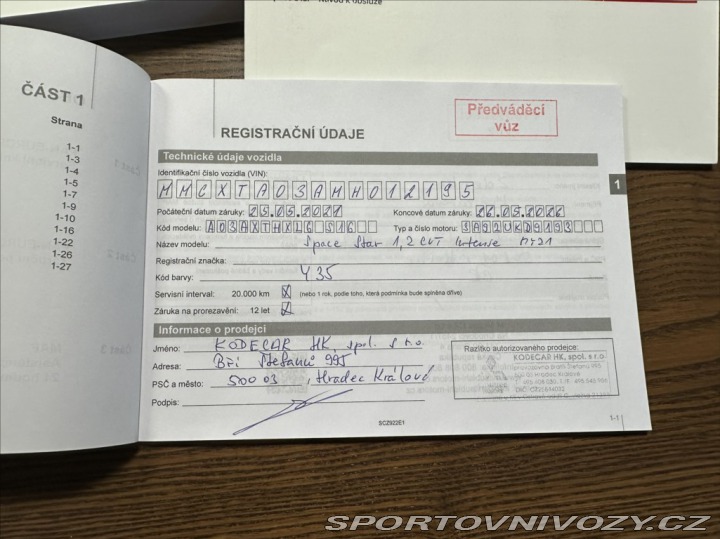 Návod k obsluze
ČÁST 1
Strana
1-1
1-3
1-4
1-5
1-7
1-9
1-10
1-16
1-22
1-26
1-27
Předváděcí
vůz
REGISTRAČNÍ ÚDAJE
Technické údaje vozidla
1
Identifikační číslo vozidla (VIN):
MMCXTA03AMH012195
Počáteční datum záruky: 25.05.2021 Koncové datum záruky:
Kód modelu: A03AXTHXL6 S16 Typ a číslo motoru:
Název modelu: Space Star 1,2 CVT Intense MY21
Registrační značka:
Kód barvy: Y35
Servisní interval: 20.000 km X (nebo 1 rok, podle toho, která podmínka bude splněna dříve)
Záruka na prorezavění: 12 let
Informace o prodejci
Jméno: KODECAR HK, spol. s r.o.
Adresa: Bří Štefanů 995
PSČ a město: 500 03, Hradec Králové
Podpis:
Razítko autorizovaného prodejce:
KODECAR HK, spol. s r.o.
SCZ922E1
1-1
SPORTOVNIVOZY.CZ